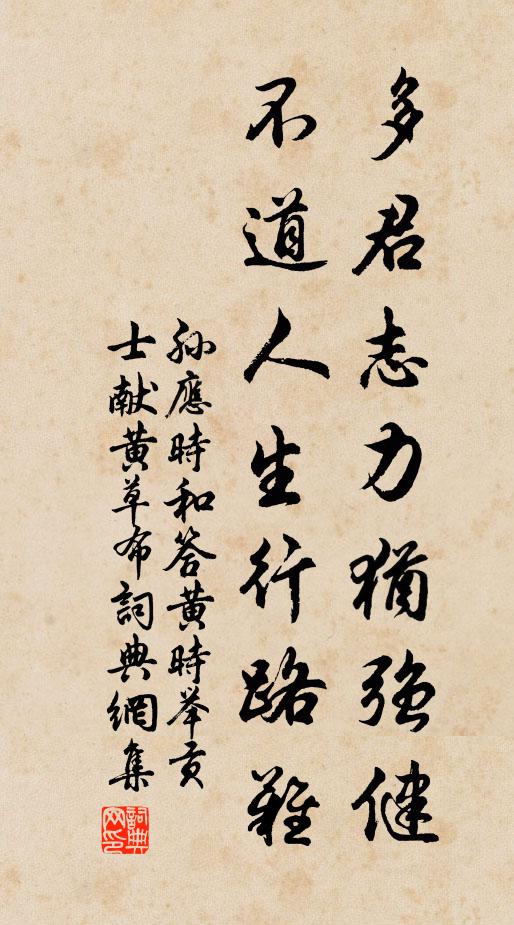 多君志力猶強健
不道人生行路難
孫應時和答黃時举貢
士献黃草布詞典網集
詞典网印